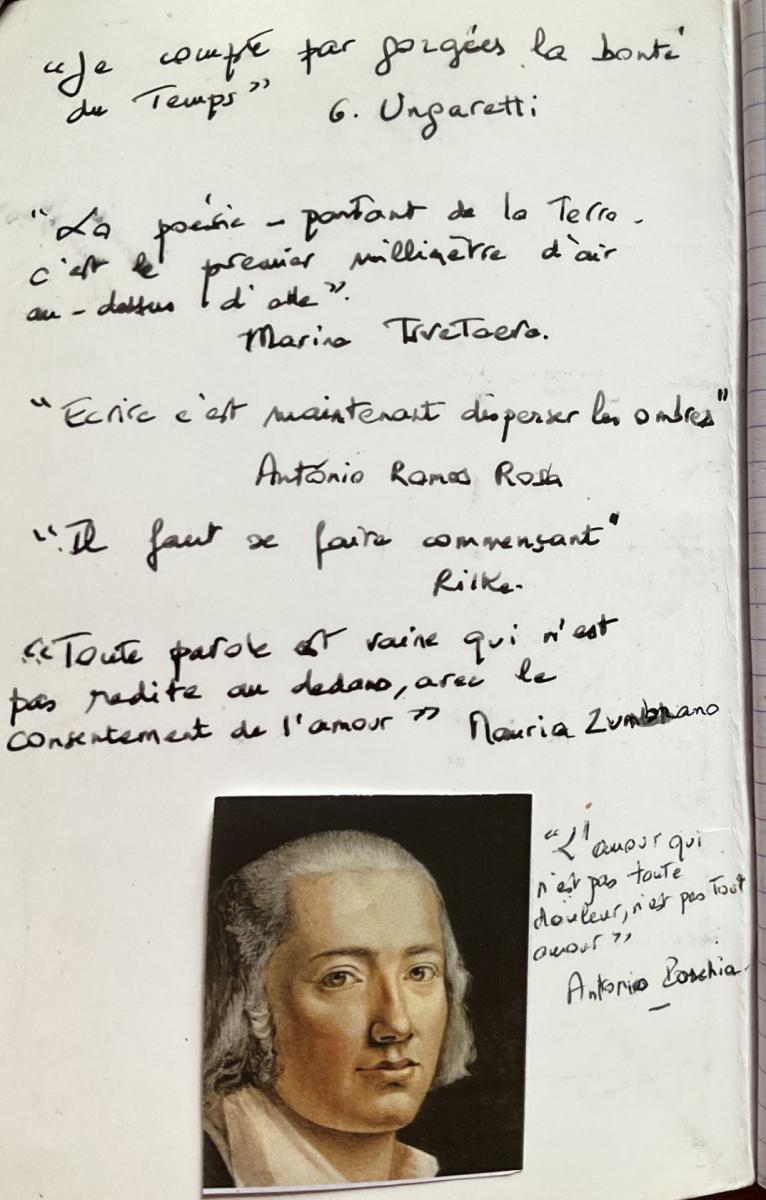 “Je compte par gorgées la bonté
du Temps”   G. Ungaretti
“La poésie - partant de la Terre -
c'est le premier millimètre d'air
au-dessus d'elle”.
Marina Tsvetaeva.
“Ecrire c'est maintenant disperser les ombres”
António Ramos Rosa
“Il faut se faire commençant”
Rilke.
“Toute parole est vaine qui n'est
pas redite au dedans, avec le
consentement de l'amour”   Zumbrano
“L'amour qui
n'est pas toute
douleur, n'est pas Tout
amour”
Antonio